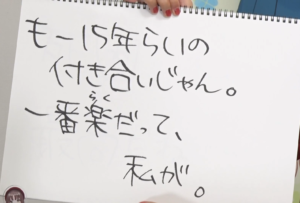 もー15年らいの
付き合いじゃん。
一番楽だって、
らく
私が。